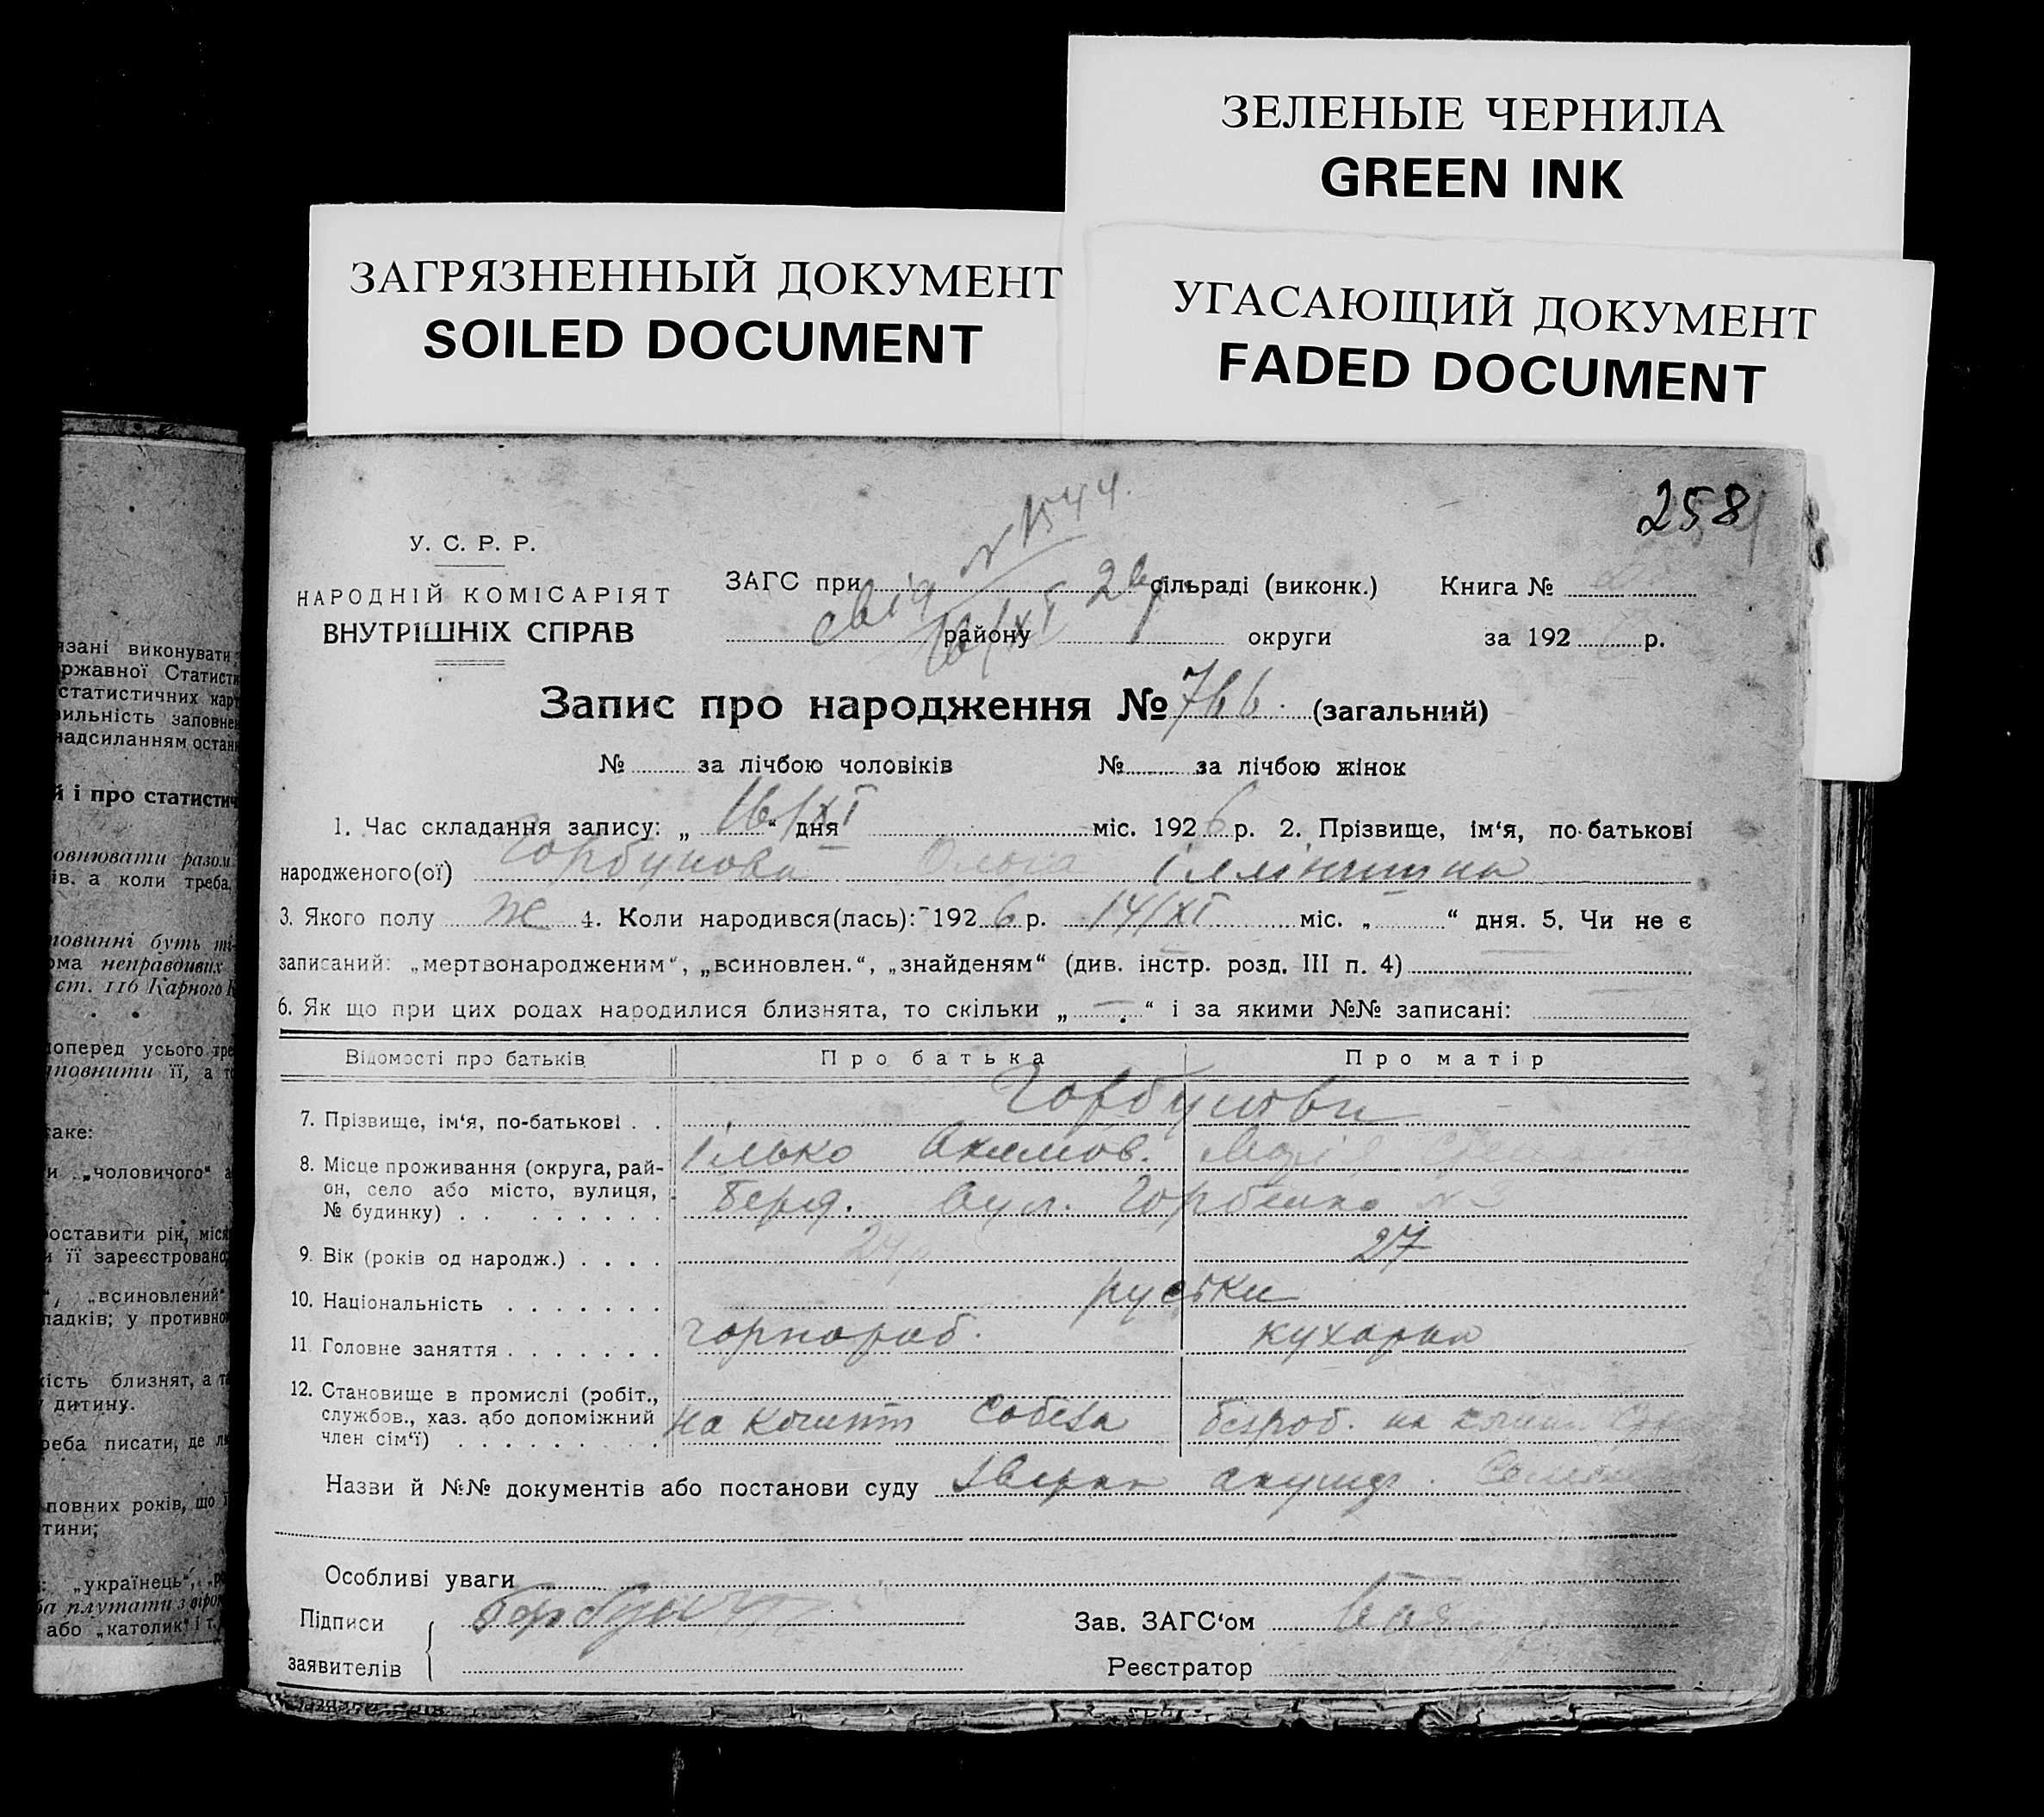 ЗЕЛЕНЫЕ ЧЕРНИЛА
GREEN INK
ЗАГРЯЗНЕННЫЙ ДОКУМЕНТ
SOILED DOCUMENT
УГАСАЮЩИЙ ДОКУМЕНТ
FADED DOCUMENT
258
У. С. Р. Р.
НАРОДНІЙ КОМІСАРІЯТ
ВНУТРІШНІХ СПРАВ
N 1544.
ЗАГС при сільраді (виконк.) Книга №
району округи за 192 р.
Запис про народження № 766. (загальний)
№ за лічбою чоловіків № за лічбою жінок
1. Час складання запису: „ 16/XI “ дня міс. 1926 р. 2. Прізвище, ім‘я, по-батькові
народженого(ої) Горбунова Ольга Іллінишна
3. Якого полу Ж 4. Коли народився(лась): 1926 р. 14/XI міс. „ “ дня. 5. Чи не є
записаний: „мертвонародженим“, „всиновлен.“, „знайденям“ (див. інстр. розд. III п. 4)
6. Як що при цих родах народилися близнята, то скільки „ — “ і за якими №№ записані:
Відомості про батьків Про батька Про матір
7. Прізвище, ім‘я, по-батькові . . Горбунови
Ілько Акимов. Марія
8. Місце проживання (округа, рай-
он, село або місто, вулиця,
№ будинку) . . Берд. вул. Горбенко N
9. Вік (років од народж.) . . . . 27
10. Національність . . . . . . . руські
11. Головне заняття . . . . . . . чорнороб. кухарка
12. Становище в промислі (робіт.,
службов., хаз. або допоміжний
член сім‘ї) . . . . . . . . . на кошт Собеза безроб. на кошт
Назви й №№ документів або постанови суду акушер.
Особливі уваги
Підписи Горбун
заявителів
Зав. ЗАГС‘ом
Реєстратор
язані виконувати
ержавної Статисти
статистичних кар
вильність заповне
надсиланням остан
й і про статистич
овнювати разом
ів. а коли треба,
повинні буть
ома неправдивих
ст. 116 Карного
поперед усього тре
повнити її, а т
таке:
и „чоловичого“ а
поставити рік, міся
и її зареєстровано,
“, „всиновлений“
падків; у противно
кість близнят, а т
у дитину.
реба писати, де
повних років, що
тини;
: „українець“,
ба плутати з вірою
або „католик“ і т.